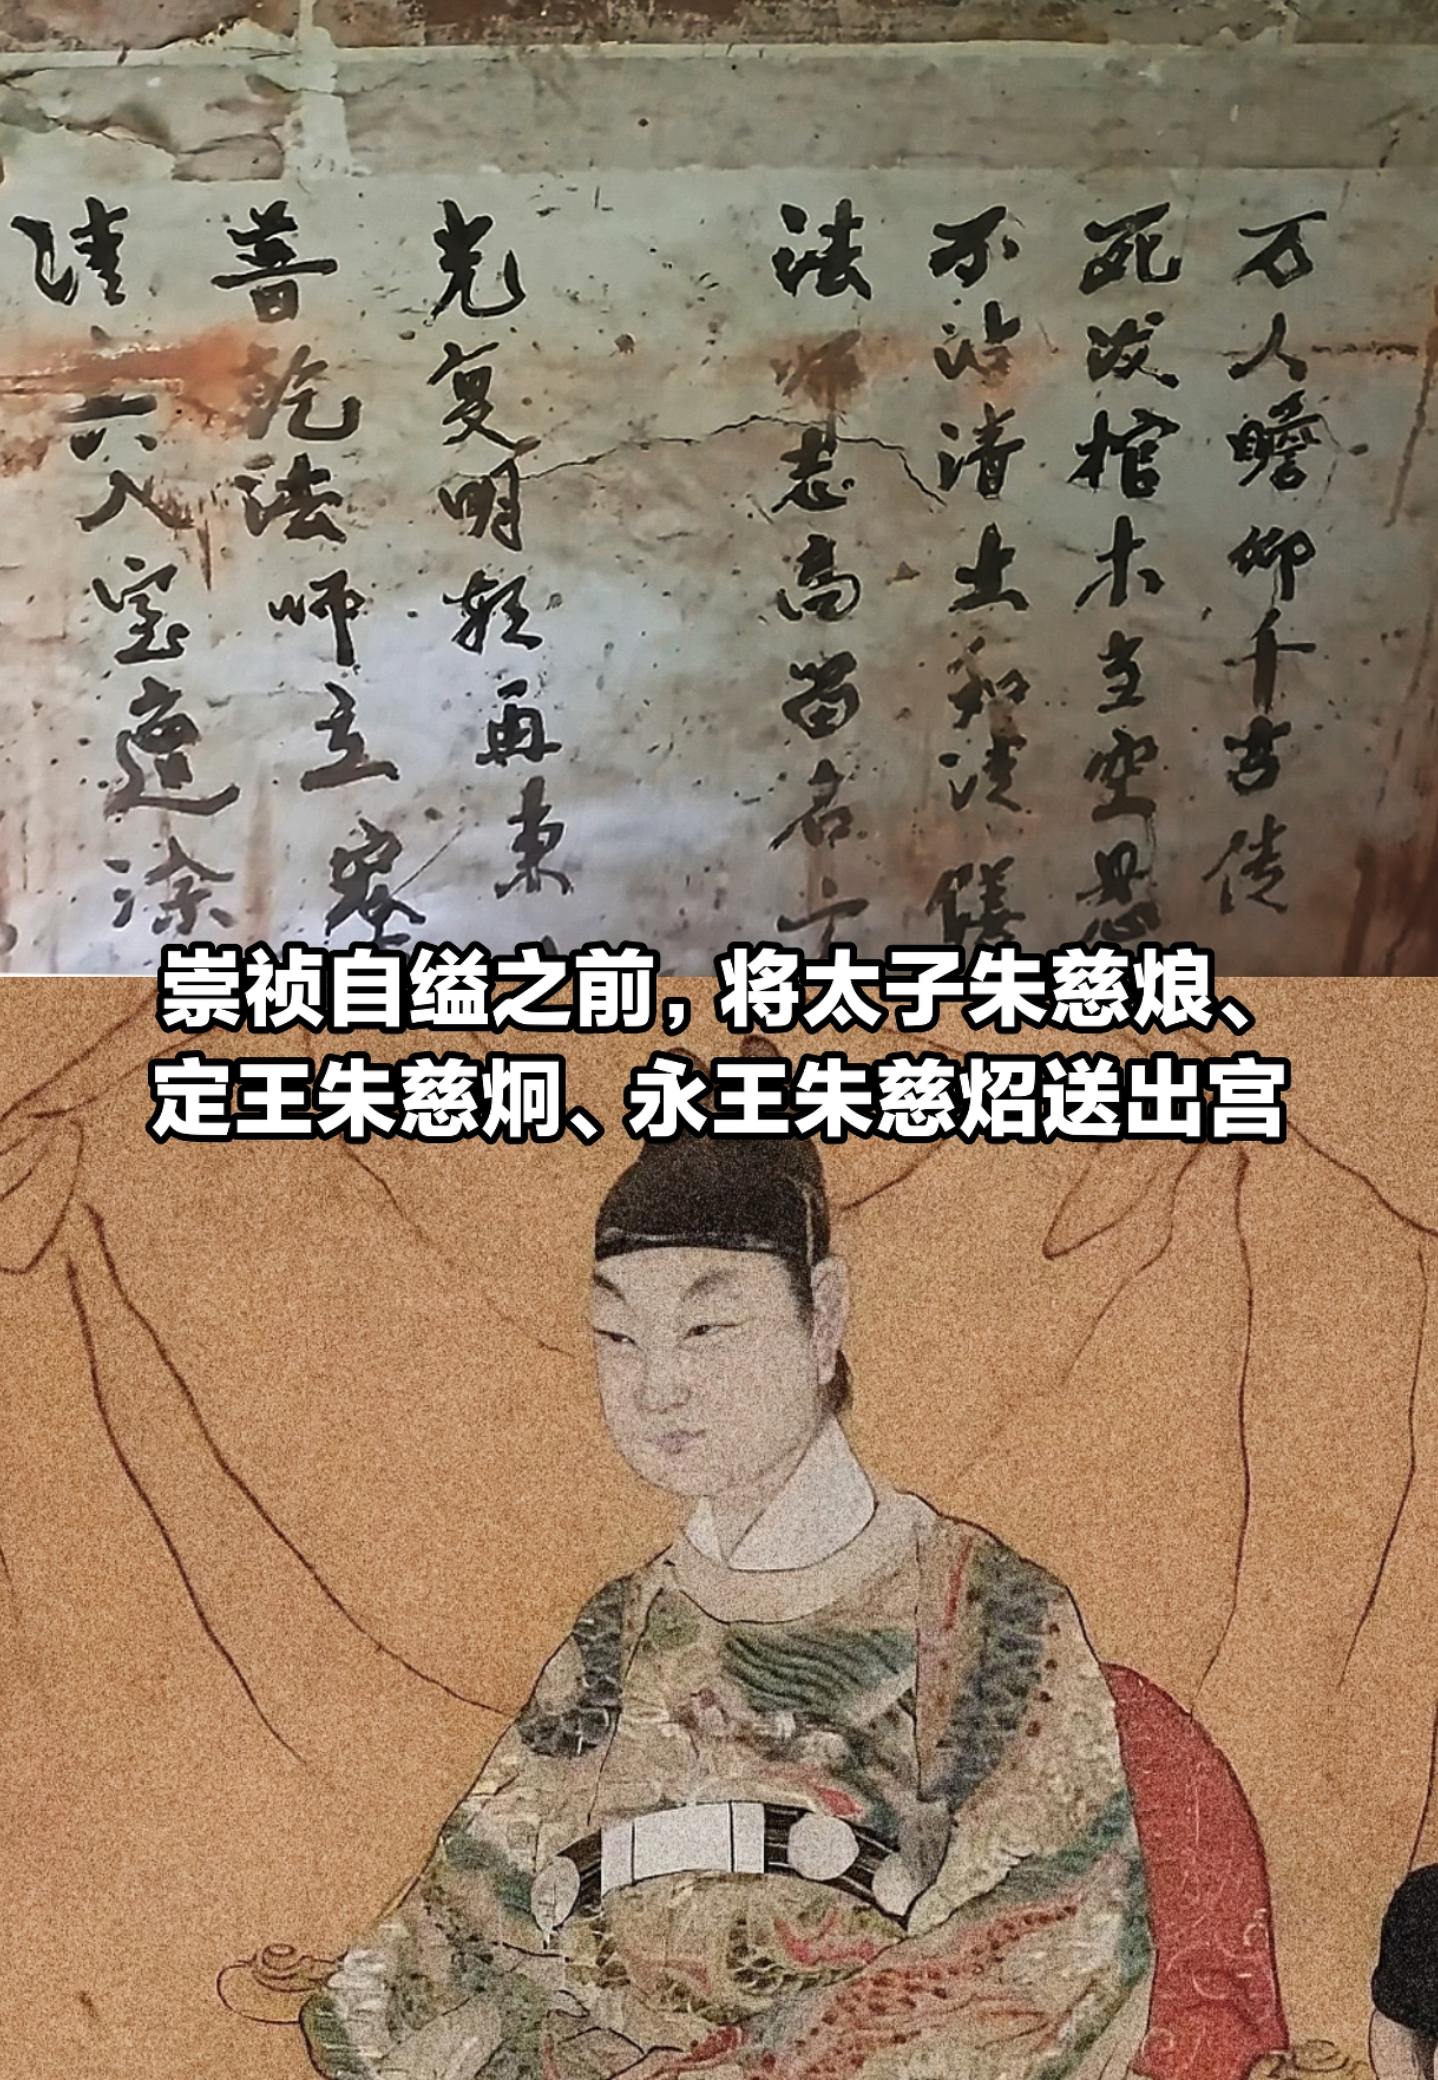 万人瞻仰千古传
死 棺木 空
不沾清土和清
法师志高留名
光复明朝再
普乾法师立
六入室
崇祯自缢之前，将太子朱慈烺、
定王朱慈炯、永王朱慈炤送出宫